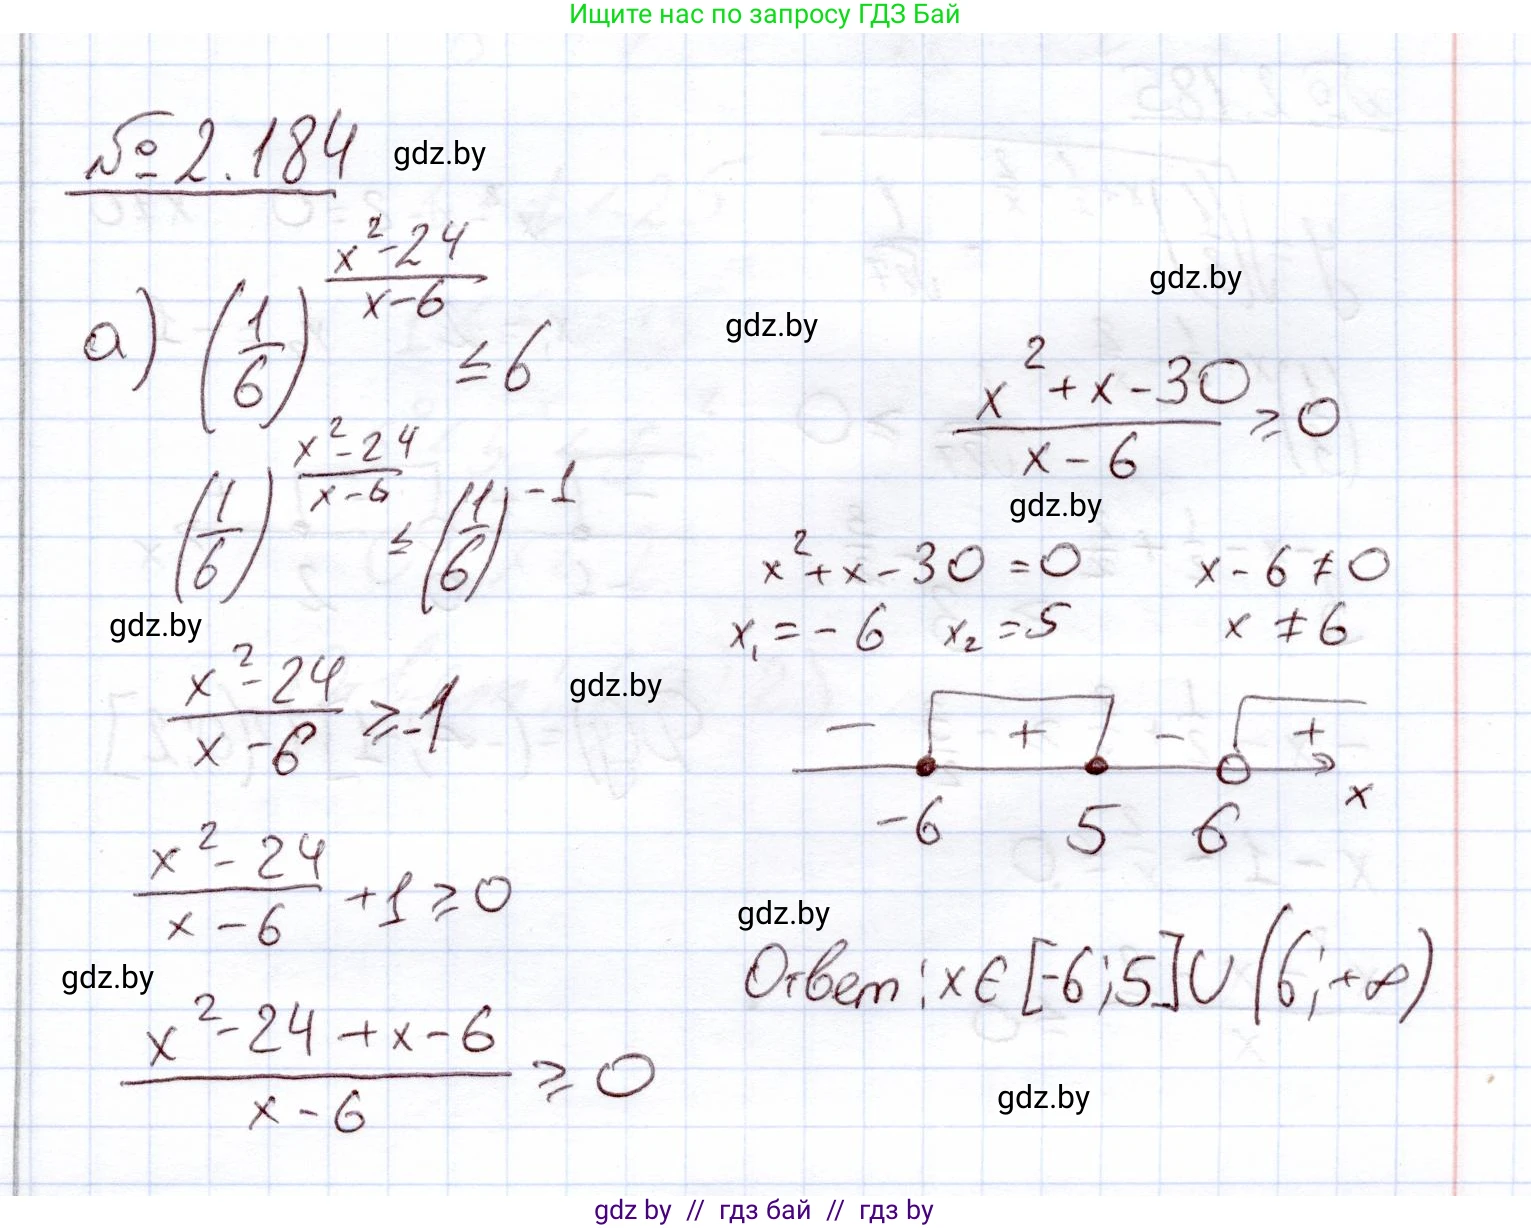 Ищите нас по запросу ГДЗ Бай
№ 2.184
gdz.by
а) (1/6)^((x²-24)/(x-6)) ≤ 6
(1/6)^((x²-24)/(x-6)) ≤ (1/6)^(-1)
gdz.by
(x²-24)/(x-6) ≥ -1
gdz.by
(x²-24)/(x-6) + 1 ≥ 0
gdz.by
(x²-24+x-6)/(x-6) ≥ 0
gdz.by
gdz.by
(x²+x-30)/(x-6) ≥ 0
gdz.by
x²+x-30=0 x-6≠0
x₁=-6 x₂=5 x≠6
- + - +
-6 5 6 x
gdz.by
Ответ: x∈[-6;5]∪(6;+∞)
gdz.by
gdz by // гдз бай // гдз by